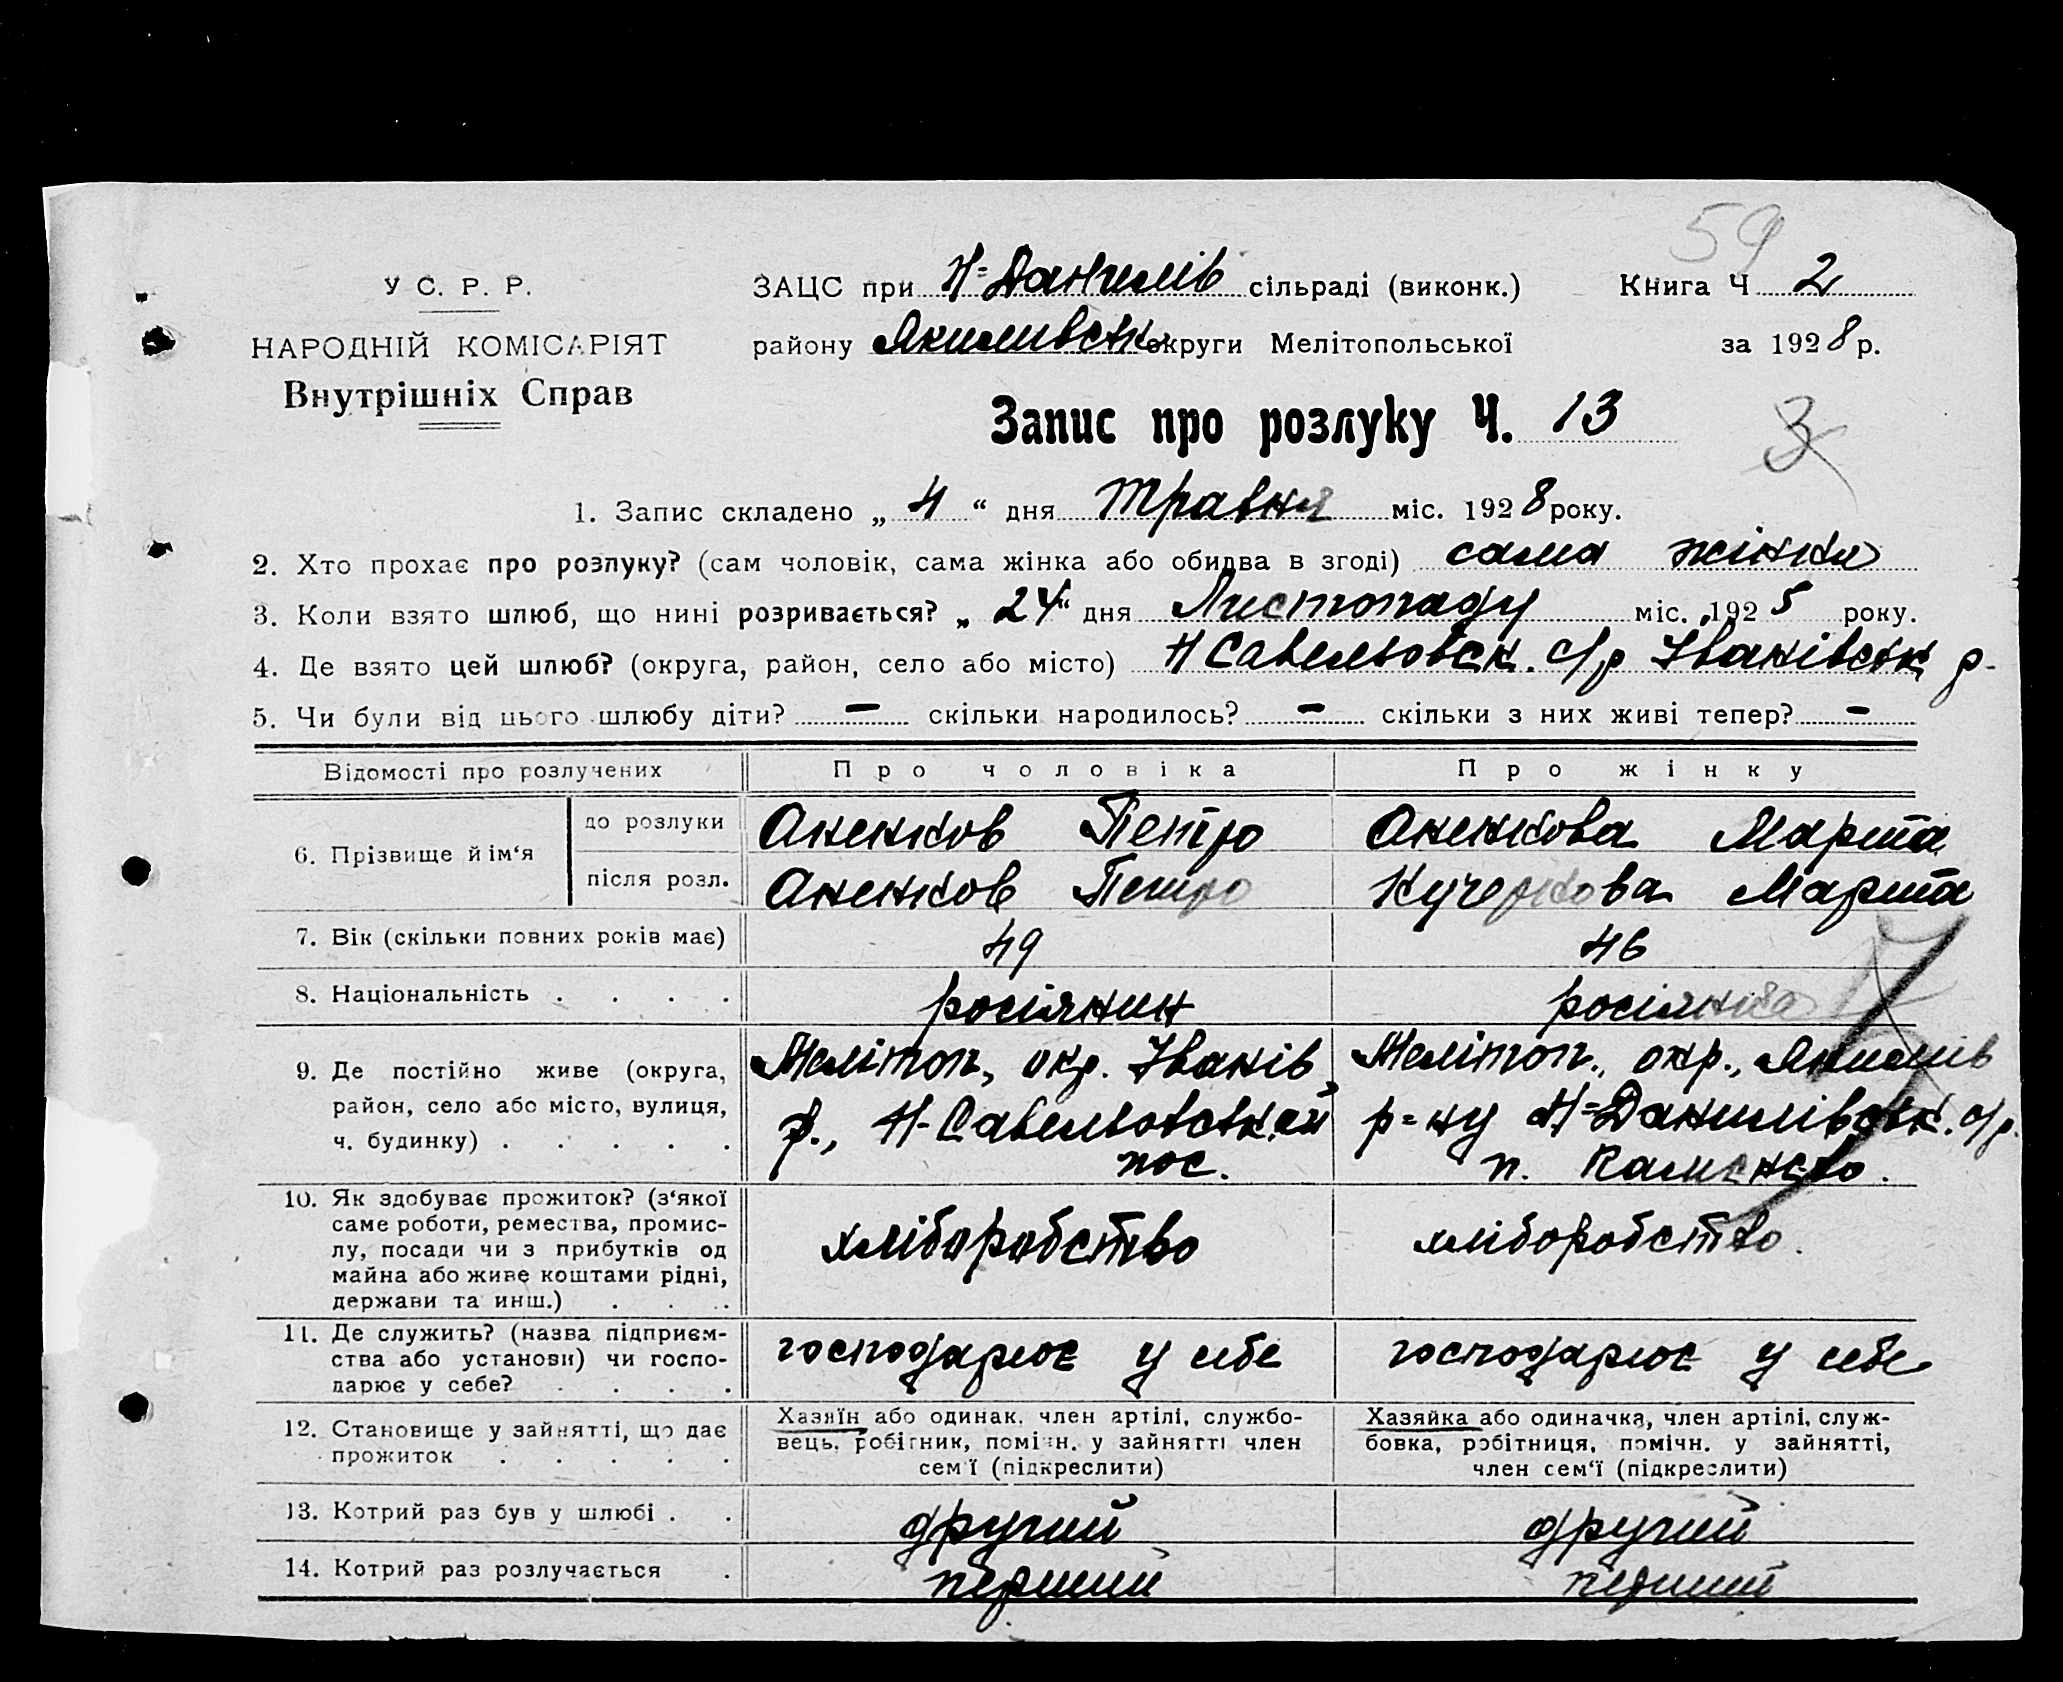 59
У С. Р. Р.
НАРОДНІЙ КОМІСАРІЯТ
Внутрішніх Справ
ЗАЦС при Н=Данилів сільраді (виконк.)
району Якимівськ округи Мелітопольської
Книга Ч 2
за 1928 р.
Запис про розлуку Ч. 13
3
1. Запис складено „ 4 “ дня травня міс. 1928 року.
2. Хто прохає про розлуку? (сам чоловік, сама жінка або обидва в згоді) сама жінка
3. Коли взято шлюб, що нині розривається? „ 24 “ дня Листопаду міс. 1925 року.
4. Де взято цей шлюб? (округа, район, село або місто) Н Савельовськ. с/р Іванівськ р-
5. Чи були від цього шлюбу діти? — скільки народилось? — скільки з них живі тепер? —
Відомості про розлучених Про чоловіка Про жінку
6. Прізвище й ім‘я до розлуки Аненков Петро Аненкова Марта
після розл. Аненков Петро Кучеркова Марта
7. Вік (скільки повних років має) 49 46
8. Національність . . . . росіянин росіянка
9. Де постійно живе (округа, район, село або місто, вулиця, ч. будинку) . . . . .
Меліто́п., окр. Іванів
р., Н-Савельовський
пос.
Мелітоп., окр., Якимів
р=ну Н=Данилівськ. с/р.
п. Каменево.
10. Як здобуває прожиток? (з‘якої
саме роботи, ремества, промис-
лу, посади чи з прибутків од
майна або живе коштами рідні,
держави та инш.) . . .
хліборобство хліборобство.
11. Де служить? (назва підприєм-
ства або установи) чи госпо-
дарює у себе? . . . .
господарює у себе господарює у себе
12. Становище у зайнятті, що дає
прожиток . . . . .
Хазяїн або одинак, член артілі, службо-
вець, робітник, помічн. у зайнятті член
сем‘ї (підкреслити)
Хазяйка або одиначка, член артілі, служ-
бовка, робітниця, помічн. у зайнятті,
член сем‘ї (підкреслити)
13. Котрий раз був у шлюбі . . другий другий
14. Котрий раз розлучається . перший перший